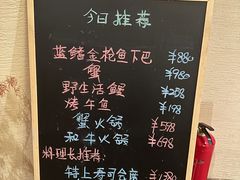 今日推荐
蓝鳍金枪鱼下巴 ¥258
蟹 ¥980
野生活鳗 ¥258
烤牛肉 ¥198
蟹火锅 ¥598
和牛火锅 ¥698
料理长推荐:
特上寿司会席